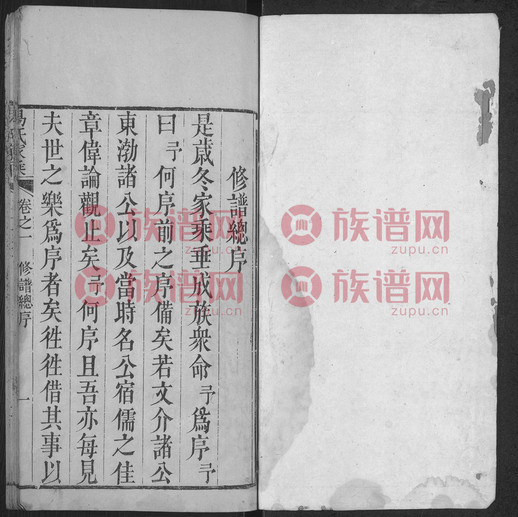 修譜總序
是歲冬家乘垂成族衆命予爲序予
曰予何序前之序備矣若文介諸公
東渤諸公以及當時名公宿儒之佳
章偉論觀止矣予何序且吾亦每見
夫世之樂爲序者矣徃徃借其事以
卷之一 修譜總序 一
族谱网
zupu.cn
族谱网
zupu.cn
族谱网
zupu.cn
族谱网
zupu.cn